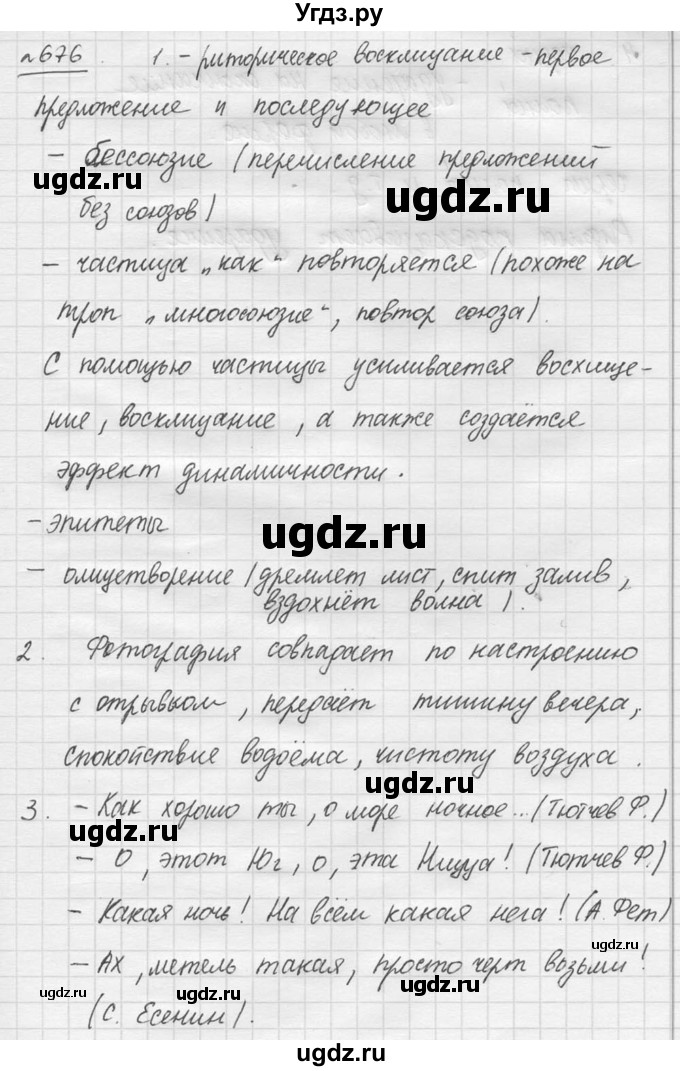 Угдз.ру
№676. 1. – риторическое восклицание – первое
предложение и последующее
– бессоюзие (перечисление предложений
ugdz.ru ugdz.ru
без союзов)
– частица „как“ повторяется (похоже на
троп „многосоюзие“, повтор союза).
С помощью частицы усиливается восхище-
ние, восклицание, а также создаётся
эффект динамичности.
– эпитеты
ugdz.ru
– олицетворение (дремлет лист, спит залив,
вздохнёт волна).
2. Фотография совпадает по настроению
с отрывком, передаёт тишину вечера,
спокойствие водоёма, чистоту воздуха.
ugdz.ru
3. – Как хорошо ты, о море ночное... (Тютчев Ф.)
ugdz.ru
– О, этот Юг, о, эта Ницца! (Тютчев Ф.)
– Какая ночь! На всём какая нега! (А. Фет)
ugdz.ru
– Ах, метель такая, просто чёрт возьми!
ugdz.ru ugdz.ru
(С. Есенин).
ugdz.ru